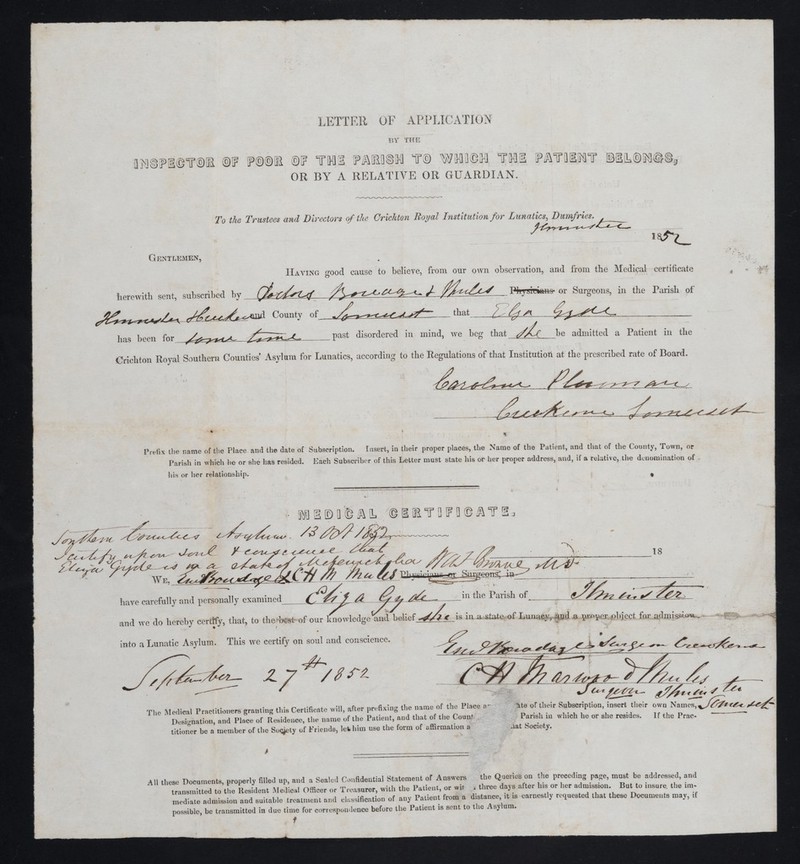 LETTER OF APPLICATION
BY THE
INSPECTOR OF POOR OF THE PARISH TO WHICH THE PATIENT BELONGS,
OR BY A RELATIVE OR GUARDIAN.
To the Trustees and Directors of the Crichton Royal Institution for Lunatics, Dumfries.
Ilminster
1852
GENTLEMEN,
HAVING good cause to believe, from our own observation, and from the Medical certificate
herewith sent, subscribed by Doctors & Mules Physicians or Surgeons, in the Parish of
Ilminster & and County of Somerset that Elza Gyde
has been for some time past disordered in mind, we beg that she be admitted a Patient in the
Crichton Royal Southern Counties' Asylum for Lunatics, according to the Regulations of that Institution at the prescribed rate of Board.
Caroline Plowman
Crewkerne Somerset
Prefix the name of the Place and the date of Subscription. Insert, in their proper places, the Name of the Patient, and that of the County, Town, or
Parish in which he or she has resided. Each Subscriber of this Letter must state his or her proper address, and, if a relative, the denomination of
his or her relationship.
MEDICAL CERTIFICATE.
Southern Counties Asylum. 13 Oct 1852
I certify upon soul & conscience that
Eliza Gyde is in a state of Melancholia WAF Browne MD
18
WE, & C H M Mules Physicians or Surgeons, in
have carefully and personally examined Eliza Gyde in the Parish of Ilminster
and we do hereby certify, that, to the best of our knowledge and belief she is in a state of Lunacy, and a proper object for admission
into a Lunatic Asylum. This we certify on soul and conscience.
Surgeon Crewkerne
September 27th 1852 C H Marwood Mules
Surgeon Ilminster
Somerset
The Medical Practitioners granting this Certificate will, after prefixing the name of the Place ate of their Subscription, insert their own Names,
Designation, and Place of Residence, the name of the Patient, and that of the Count Parish in which he or she resides. If the Prac-
titioner be a member of the Society of Friends, let him use the form of affirmation a hat Society.
All these Documents, properly filled up, and a Sealed Confidential Statement of Answers the Queries on the preceding page, must be addressed, and
transmitted to the Resident Medical Officer or Treasurer, with the Patient, or wit three days after his or her admission. But to insure the im-
mediate admission and suitable treatment and classification of any Patient from a distance, it is earnestly requested that these Documents may, if
possible, be transmitted in due time for correspondence before the Patient is sent to the Asylum.